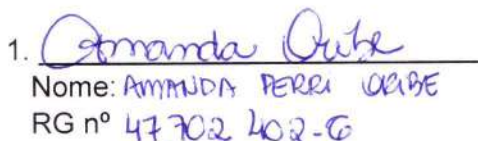 1. Amanda Oribe
Nome: AMANDA PERRI ORIBE
RG nº 47 702 402-6